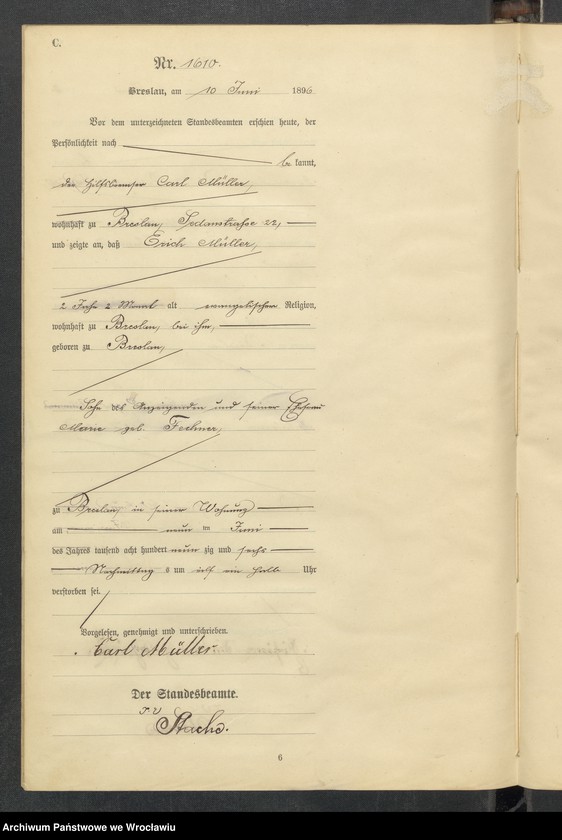 C.
Nr. 1610.
Breslau, am 10 Juni 1896
Vor dem unterzeichneten Standesbeamten erschien heute, der
Persönlichkeit nach
be kannt,
der Hilfsbremser Carl Müller,
wohnhaft zu Breslau, Sedanstraße 22,
und zeigte an, daß Erich Müller,
2 Jahr 2 Monat alt evangelischer Religion,
wohnhaft zu Breslau, bei ihm,
geboren zu Breslau,
Sohn des Anzeigenden und seiner Ehefrau
Marie geb. Fechner,
zu Breslau, in seiner Wohnung
am neun ten Juni
des Jahres tausend acht hundert neun zig und sechs
Nachmittag s um elf ein halb Uhr
verstorben sei.
Vorgelesen, genehmigt und unterschrieben.
Carl Müller
Der Standesbeamte.
I. V.
6
Archiwum Państwowe we Wrocławiu